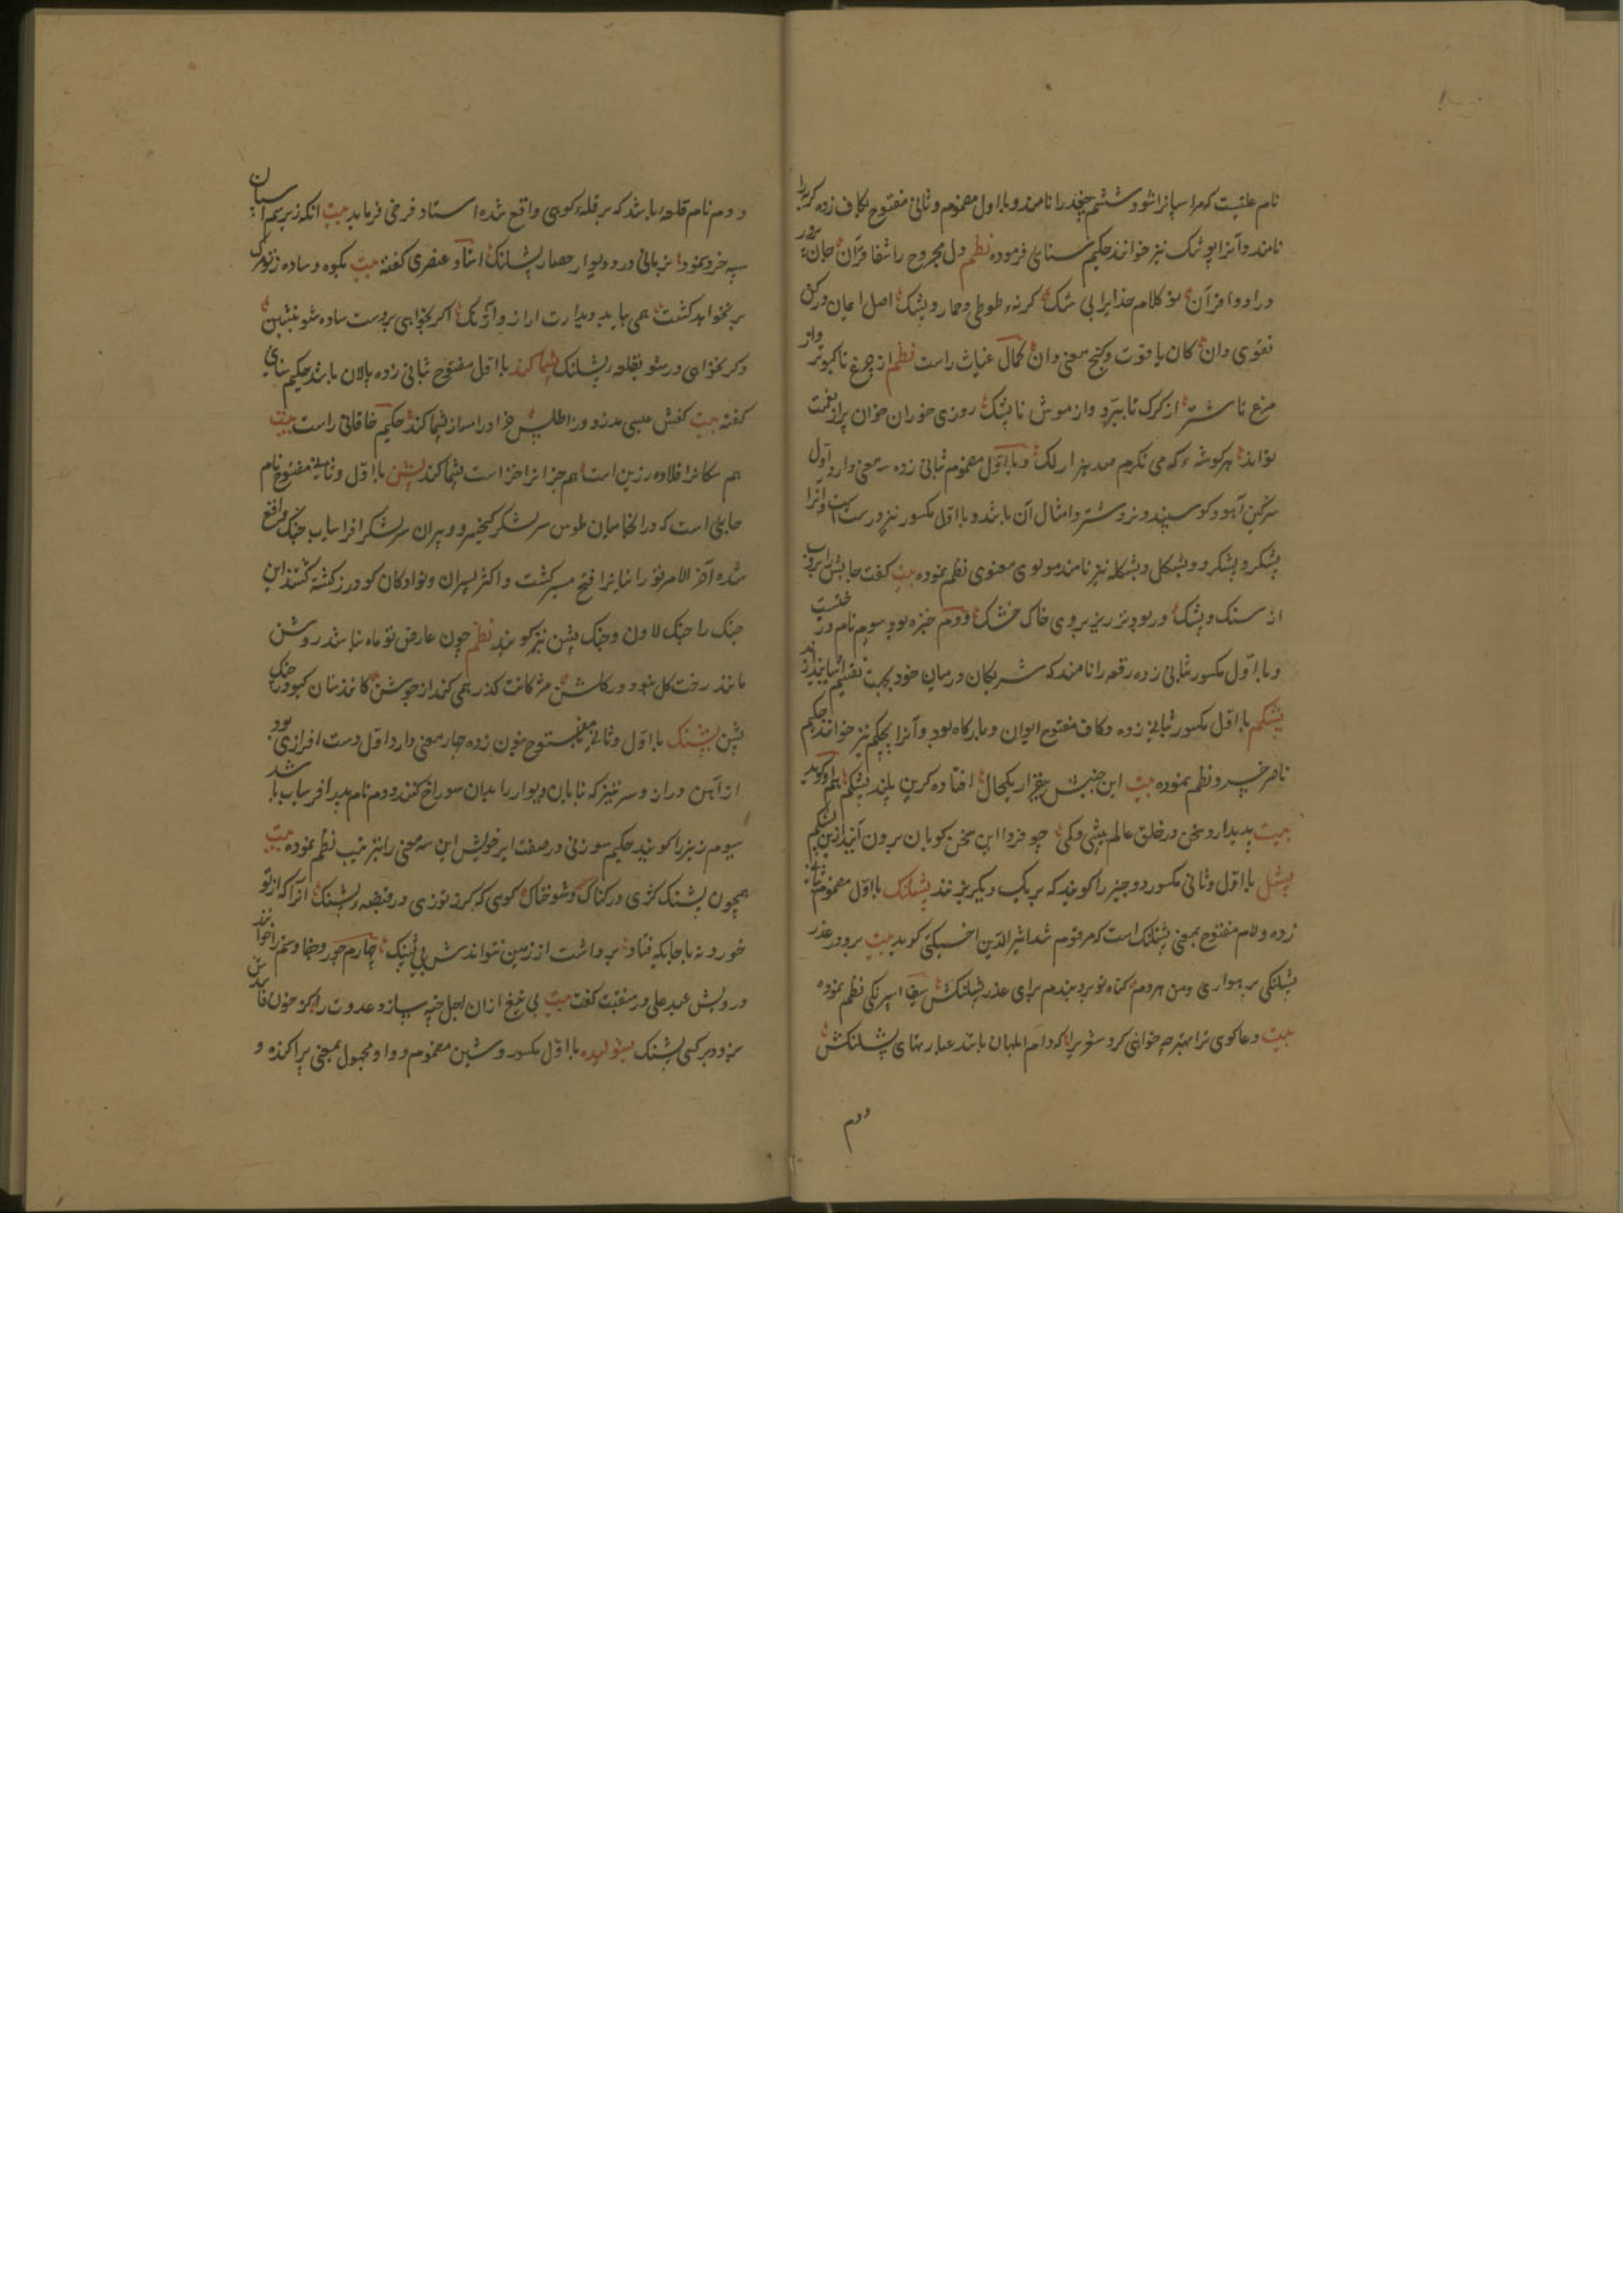 نام علتیست که مر اسپانرا شود ششم چغد را نامند و با اول مضموم و ثانی مفتوح بکاف زده کربه را
نامند و آنرا پوشک نیز خوانند حکیم سنای فرموده نظم دل مجروح را شفا قرآن جان پر
درد را دوا قرآن تو کلام خدایرا بی شک کرنه طوطی و حمار و پشک اصل ایمان و رکن
تقوی دان کان یاقوت و کنج معنی دان کمال غیاث راست نظم از چرغ تا کبوتر واز
مرغ تا شتر از کرک تا ببر و از موش تا پشک روزی خوران خوان پر از نعمت
تواند هر کوشه که می نکرم صد هزار لک و با اول مضموم بثانی زده سه معنی دارد اول
سرکین آهو و کوسپند و بز و شتر و امثال آن باشد و با اول مکسور نیز درست است و آنرا
پشکر و پشکرو و پشکل و پشکله نیز نامند مولوی معنوی نظم نموده بیت کفت جابش را بروب
از سنک و پشک ور بود تر ریز بروی خاک خشک دوم خبزه بود سوم نام درختیست
و با اول مکسور بثانی زده رقعه را نامند که شریکان در میان خود بجهت تقسیم اشیا اندازند
پشکم با اول مکسور بثانی زده و کاف مفتوح ایوان و بارکاه بود و آنرا بجکم نیز خوانند حکیم
ناصر خسرو نظم نموده بیت این جنبش بیقرار یکحال افتاده کرین بلند پشکم هم او کوید
بیت پدید آرد سخن در خلق عالم بیشی و کمی چو فردا این سخن کویان برون آیند ازین پشکم
پشل با اول و ثانی مکسور دو چیز را کویند که بر یک دیکر بزنند پشلنک با اول مضموم بثانی
زده و لام مفتوح بمعنی پشلنک است که مرقوم شد اثیرالدین اخسیکتی کوید بیت بر ودر عذر
پشلنکی بر همواری و من هر دم کناه نو بروبندم برای عذر پشلنکش سیف اسفرنکی نظم نموده
بیت دعا کوی ترا بهتر چه خواهی کرد ستوریرا که دام ابلهان باشد عبارتهای پشلنکش
دوم
دوم نام قلعه باشد که بر قلهٔ کوهی واقع شده استاد فرخی فرماید بیت آنکه زیر سم اسپان
سپه خرد نمود بزمانی در و دیوار حصار پشلنک استاد عنصری کفته بیت بکوه و ساده ز توبرک
بر نخواهد کشت همی بباید دیدارت ارز و آژنک اکر بخواهی بر دست ساده شو بنشین
و کر بخواهی در شو بقلعه پشلنک پشماکند با اول مفتوح بثانی زده پالان باشد حکیم سنای
کفته بیت کفش عیسی مدوز از اطلس خر او را مساز پشماکند حکیم خاقانی راست بیت
هم سکانرا قلاده زرین است هم خرانرا خز است پشماکند پشن با اول و ثانی مفتوح نام
جایی است که در آنجا میان طوس سر لشکر کیخسرو و پیران سر لشکر افراسیاب جنک واقع
شده آخر الامر تورانیانرا فتح میسر کشت و اکثر پسران و نوادکان کودرز کشته کشتند این
جنک را جنک لاون و جنک پشن نیز کویند نظم چون عارض تو ماه نباشد روشن
مانند رخت کل نبود در کلشن مژکانت کذر همی کند از جوشن مانند سنان کیو در جنک
پشن پشنک با اول و ثانی مفتوح بنون زده چهار معنی دارد اول دست افزاری بود
از آهن دراز و سر تیز که بنایان دیوار را بدان سوراخ کنند دوم نام پدر افراسیاب باشد
سیوم تبر را کویند حکیم سوزنی در صفت ایر خویش این سه معنی را بترتیب نظم نموده بیت
همچون پشنک کژی در کتاک و شوخناک کوسی که کرز نوزی در قبضه پشنک آنرا که از تو
خورد نه با جایکه فتاد برداشت از زمین نتواندش بی پشنک چهارم جور و جفا و ستم را خوانند
درویش عبد علی در منقبت کفت بیت بی تیغ از ان اجل خپه سازد عدوت را کز خون فاسدش
نرود بر کسی پشنک پشولیده با اول مکسور و شین مضموم و واو مجهول بمعنی پراکنده و